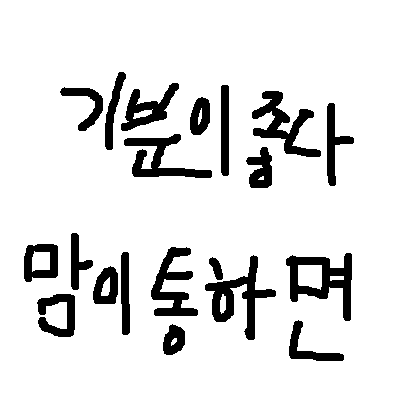 기분이 좋다
맘이 통하면